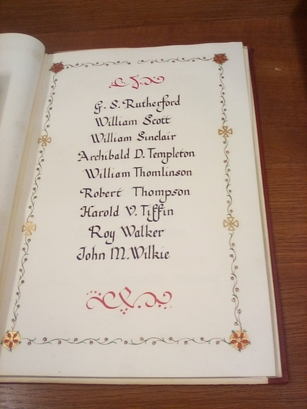 G. S. Rutherford
William Scott
William Sinclair
Archibald D. Templeton
William Thomlinson
Robert Thompson
Harold V. Tiffin
Roy Walker
John M. Wilkie